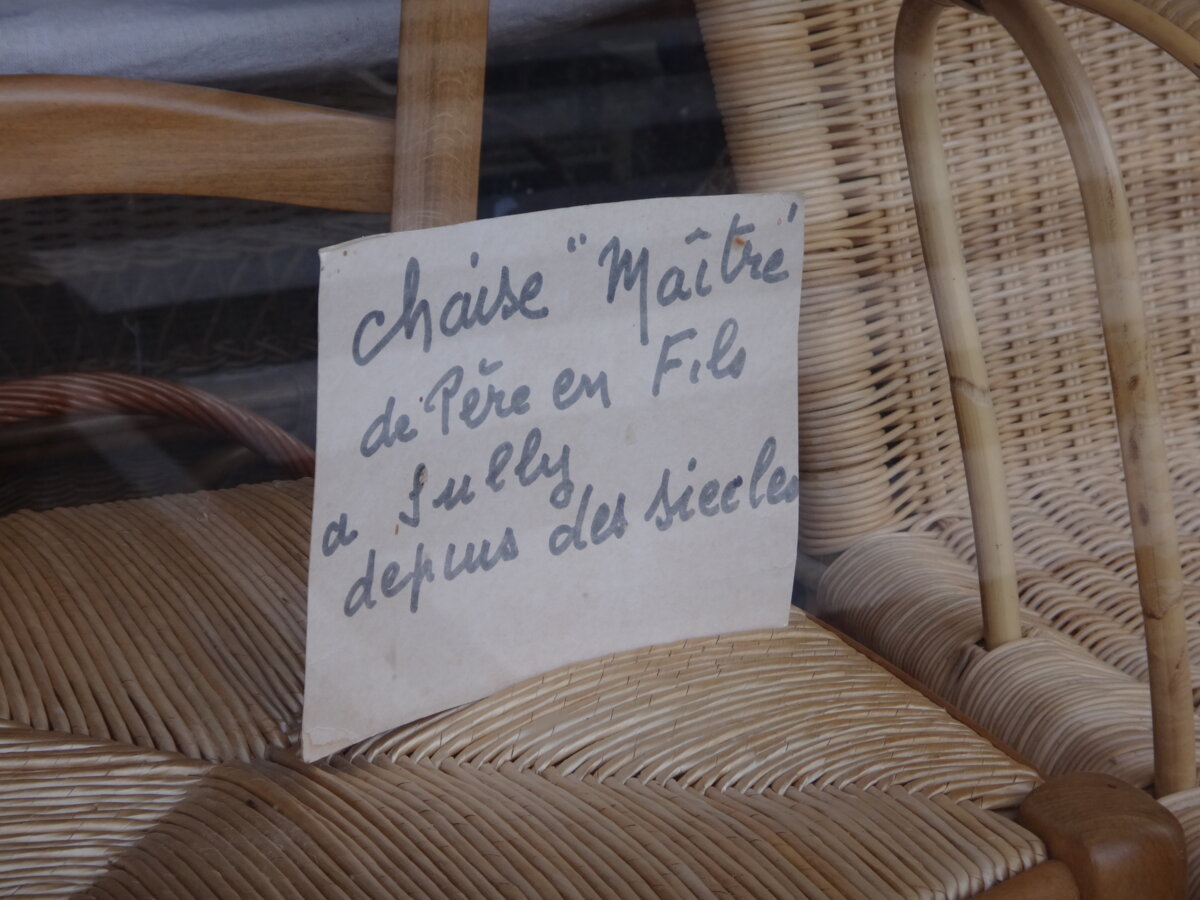 chaise "Maître"
de Père en Fils
a Sully
depuis des siecles